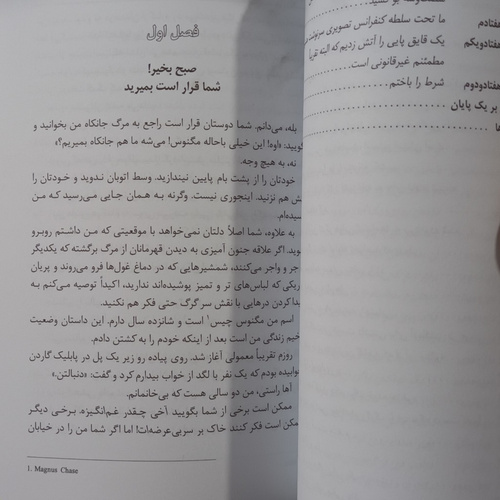 هفتادم ما تحت سلطه کنفرانس تصویری
هفتادویکم یک قایق پایی را آتش زدیم که البته
مطمئنم غیرقانونی است
هفتادودوم شرط را باختم
بر یک پایان
فصل اول
صبح بخیر!
شما قرار است بمیرید
بله، می‌دانم. شما دوستان قرار است راجع به مرگ جانکاه من بخوانید و
«اوه! این خیلی باحاله مگنوس! می‌شه ما هم جانکاه بمیریم؟»
نه، به هیچ وجه.
خودتان را از پشت بام پایین نیندازید. وسط اتوبان ندوید و خودتان را
هم نزنید. اینجوری نیست. وگرنه به همان جایی می‌رسید که من
به علاوه، شما اصلاً دلتان نمی‌خواهد با موقعیتی که من داشتم روبرو
اگر علاقه جنون آمیزی به دیدن قهرمانان از مرگ برگشته که یکدیگر
جر و واجر می‌کنند، شمشیرهایی که در دماغ غول‌ها فرو می‌روند و پریان
که لباس‌های تر و تمیز پوشیده‌اند ندارید، اکیداً توصیه می‌کنم به
کردن درهایی با نقش سر گرگ حتی فکر هم نکنید.
اسم من مگنوس چیس۱ است و شانزده سال دارم. این داستان وضعیت
زندگی من است بعد از اینکه خودم را به کشتن دادم.
روزم تقریباً معمولی آغاز شد. روی پیاده رو زیر یک پل در پابلیک گاردن
خوابیده بودم که یک نفر با لگد از خواب بیدارم کرد و گفت: «دنبالتن.»
راستی، من دو سالی هست که بی‌خانمانم.
ممکن است برخی از شما بگویید آخی چقدر غم‌انگیز. برخی دیگر
ممکن است فکر کنند خاک بر سر بی‌عرضه‌ات! اما اگر شما من را در خیابان
1. Magnus Chase